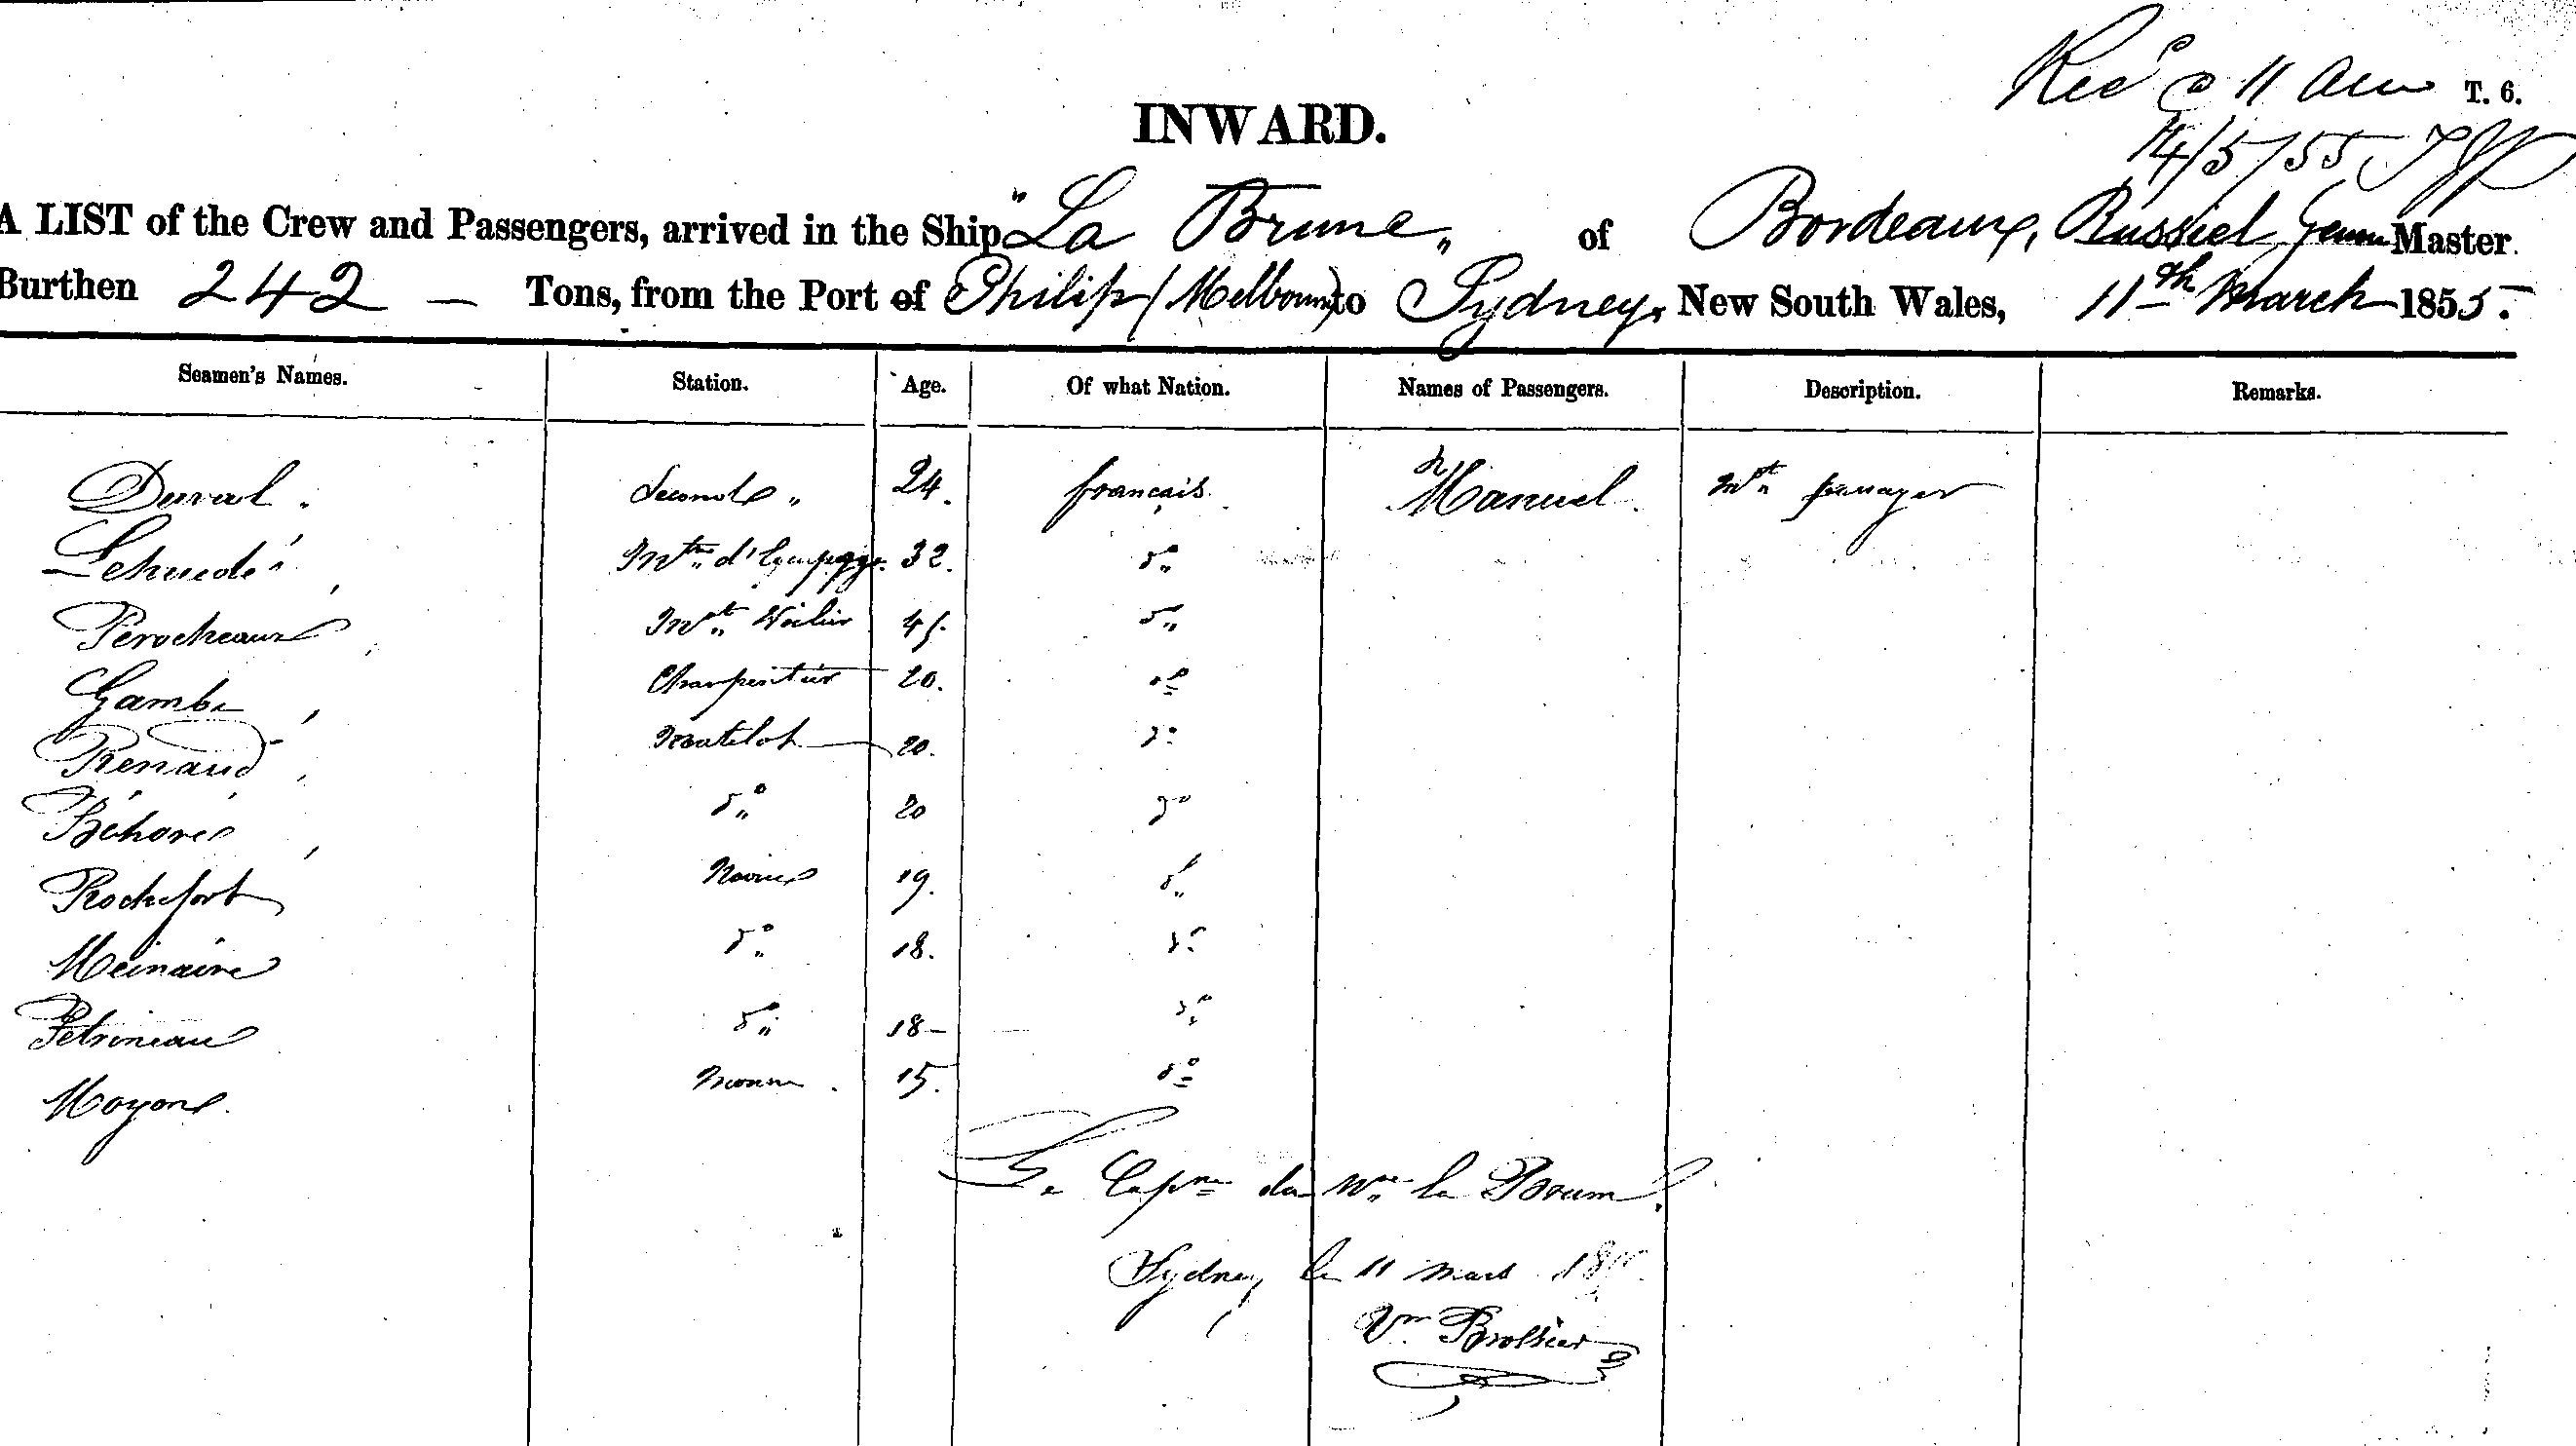 Recd @ 11 am T. 6.
INWARD.
14/3/55
A LIST of the Crew and Passengers, arrived in the Ship "La Brune" of Bordeaux, Master
Burthen 242 – Tons, from the Port of Philip (Melbourne) to Sydney, New South Wales, 11th March 1855.
Seamen's Names. Station. Age. Of what Nation. Names of Passengers. Description. Remarks.
Duval. Second 24. français. Manuel. passager
32. do
Perocheaux Mt Voilier do
Gambe Charpentier 20. do
Renaud Matelot 20. do
do 20 do
Rochefort Novice 19. do
do 18. do
Petrineau do 18 – do
15. do
Le Capne du Nre la Brune
Sydney le 11 mars